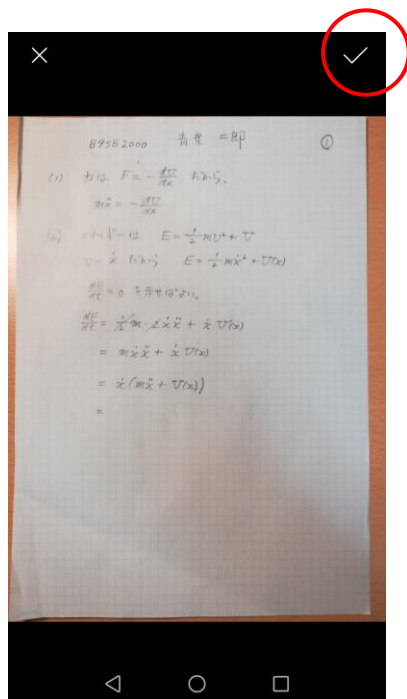 B9SB2000 青葉 二郎 ①
(1) 力は F = -dU/dx だから、
mẍ = -dU/dx
(2) エネルギーは E = 1/2 mv² + U
v = ẋ だから E = 1/2 mẋ² + U(x)
dE/dt = 0 を示せばよい。
dE/dt = 1/2 m・2ẋẍ + ẋ U(x)
= mẋẍ + ẋ U(x)
= ẋ(mẍ + U(x))
=